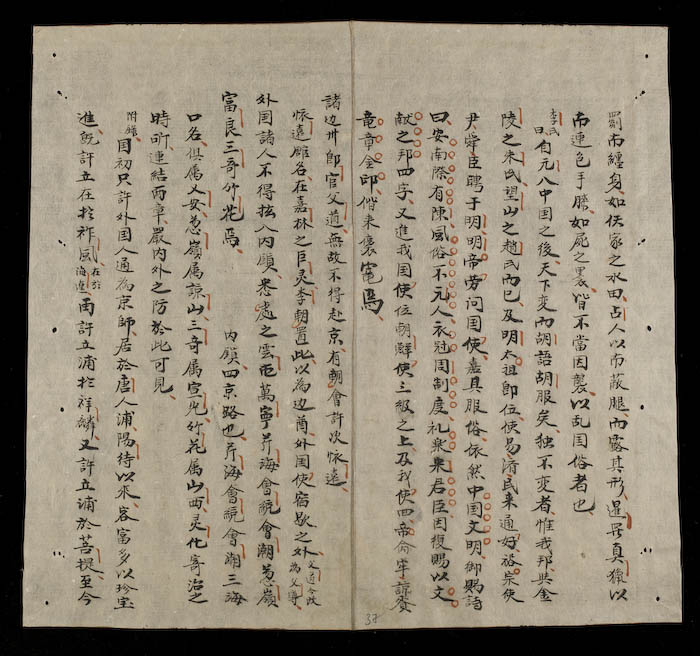 罽布纏身如仸家之水田占人以布蔽腿而露其形暹罗真獵以
布連包手膝如屍之裹皆不當因襲以乱国俗者也
李氏曰自元入中国之後天下変而胡語胡服矣独不変者惟我邦与金
陵之朱氏望山之趙氏而已及明太祖即位使易濟民来通好裕宗使
尹舜臣聘于明明帝労问国使嘉其服俗依然中国文明御賜詩
曰安南際有陳風俗不元人衣冠周制度礼楽宋君臣因復賜以文
献之邦四字又進我国使位朝鮮使三級之上及我使回帝命牢諒賫
竜章金印偕来褒寵焉
諸边卅郎官父道無故不得赴京有朝會許次怀遠
怀遠驛名在嘉林之巨灵李朝置此以為边酋外国使宿歇之外父道今改為父導
外国諸人不得拡入内鎮悉處之雲屯萬寧芹海會統會潮葱嶺
富良三奇竹花焉 内鎮四京路也芹海會統會潮三海
口名俱属乂安葱嶺属諒山三奇属宣光竹花属山西灵化寄治之
時所連結两章嚴内外之防於此可見
附錄国初只許外国人通為京師居於唐人浦陽待以柔客富多以珍宝
進既許立在於祚風在於海進 两許立浦於祥麟又許立浦於菩提至今
37